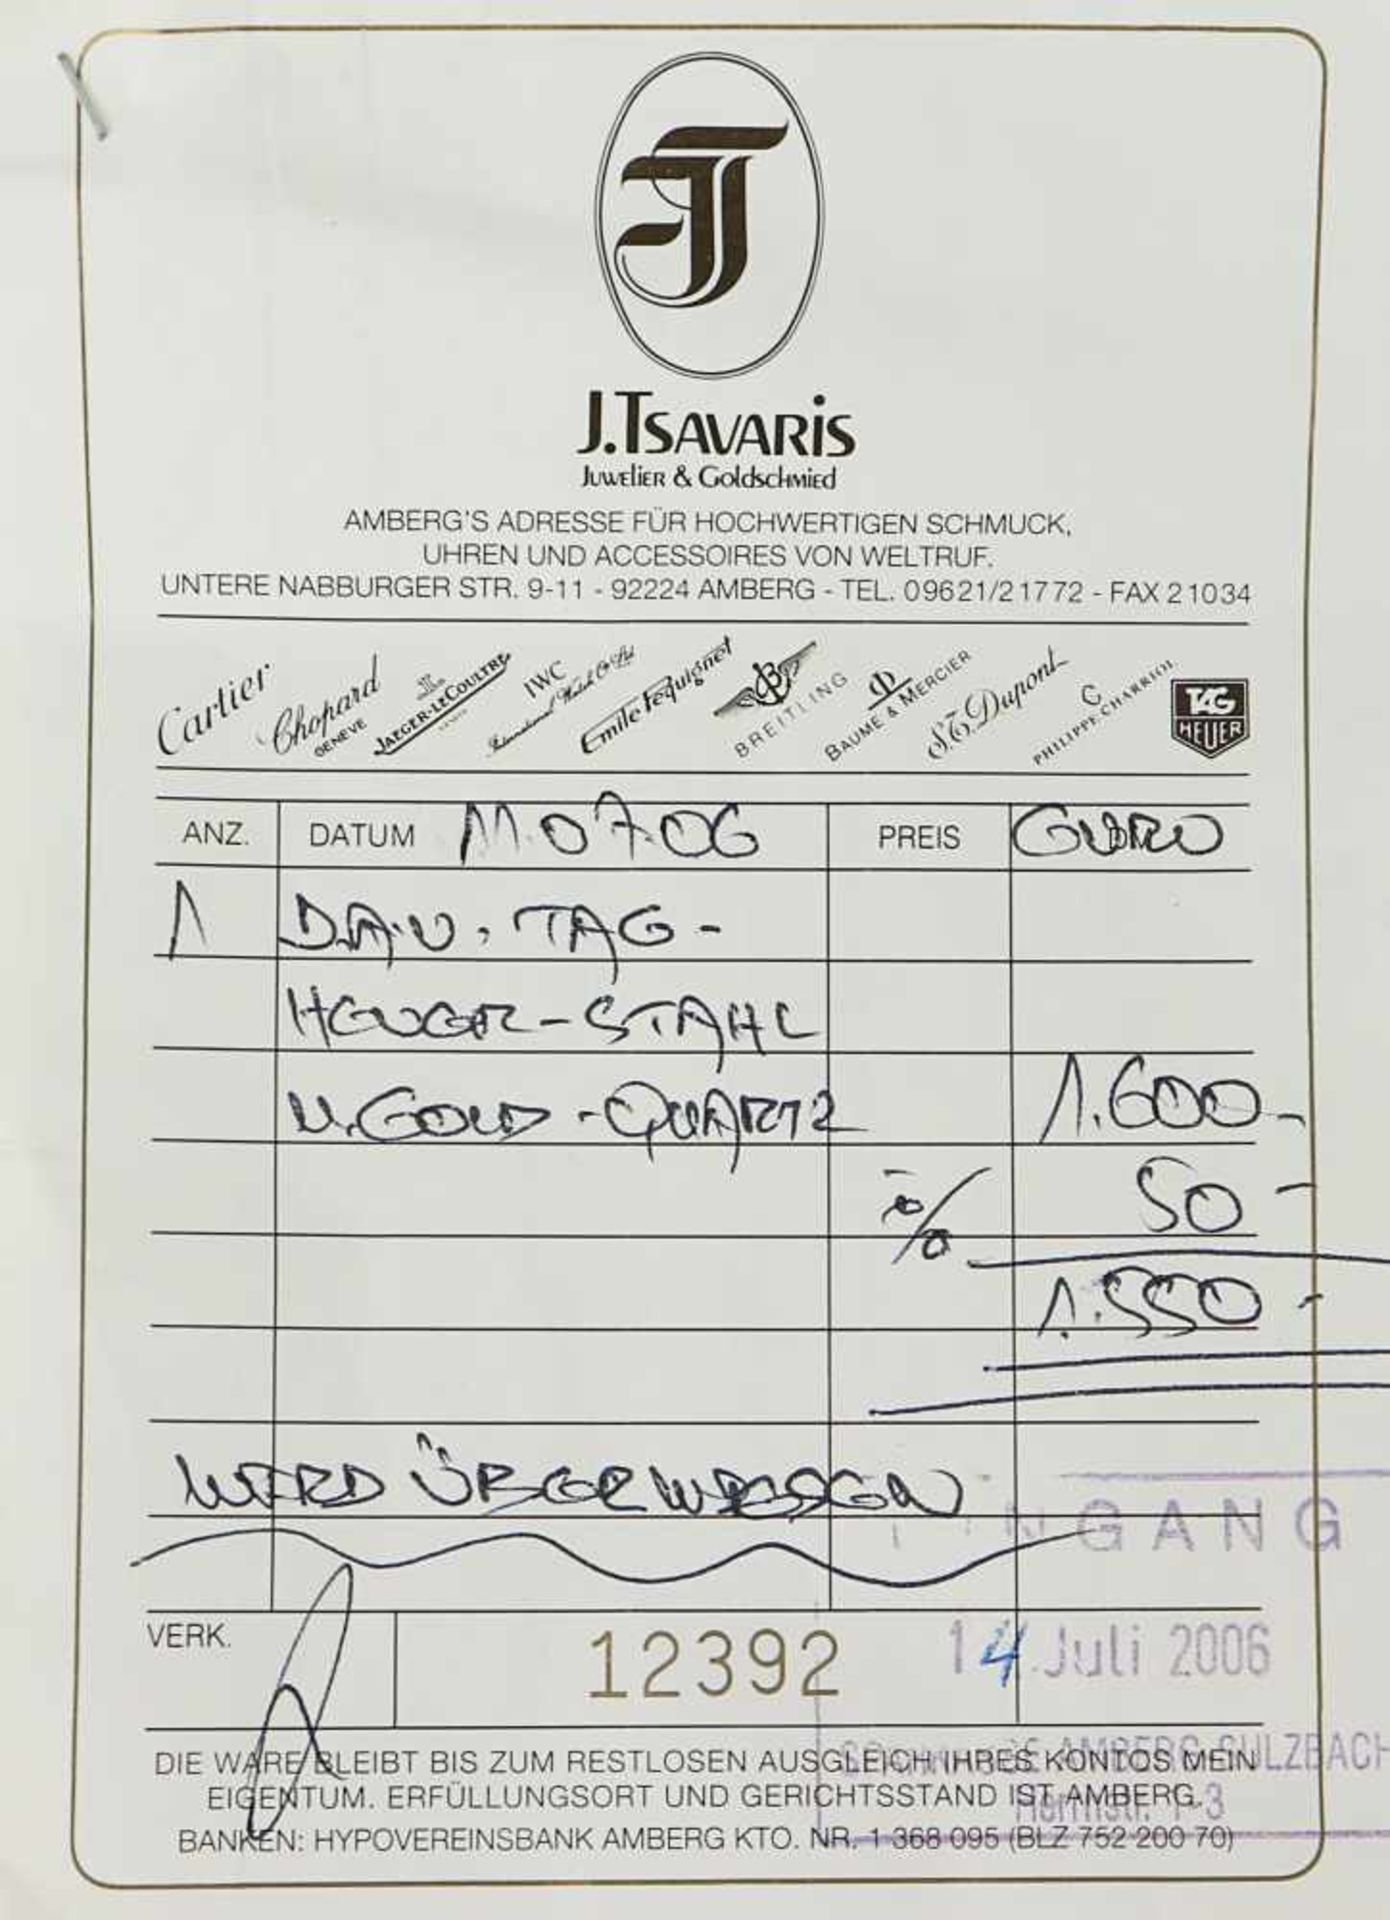 J.Tsavaris
Juwelier & Goldschmied
AMBERG'S ADRESSE FÜR HOCHWERTIGEN SCHMUCK,
UHREN UND ACCESSOIRES VON WELTRUF.
UNTERE NABBURGER STR. 9-11 - 92224 AMBERG - TEL. 09621/21772 - FAX 21034
Cartier Chopard GENEVE JAEGER-LECOULTRE IWC International Watch Co Ltd Emile Pequignet BREITLING BAUME & MERCIER S.T. Dupont PHILIPPE CHARRIOL TAG HEUER
ANZ. DATUM 11.07.06 PREIS EURO
1 D.A.U. TAG-
HEUER-STAHL
U. GOLD-QUARTZ 1.600-
50-
1.550-
WIRD ÜBERWIESEN
EINGANG
VERK. 12392 14. Juli 2006
DIE WARE BLEIBT BIS ZUM RESTLOSEN AUSGLEICH IHRES KONTOS MEIN
AMBERG-SULZBACH
EIGENTUM. ERFÜLLUNGSORT UND GERICHTSSTAND IST AMBERG.
BANKEN: HYPOVEREINSBANK AMBERG KTO. NR. 1 368 095 (BLZ 752 200 70)